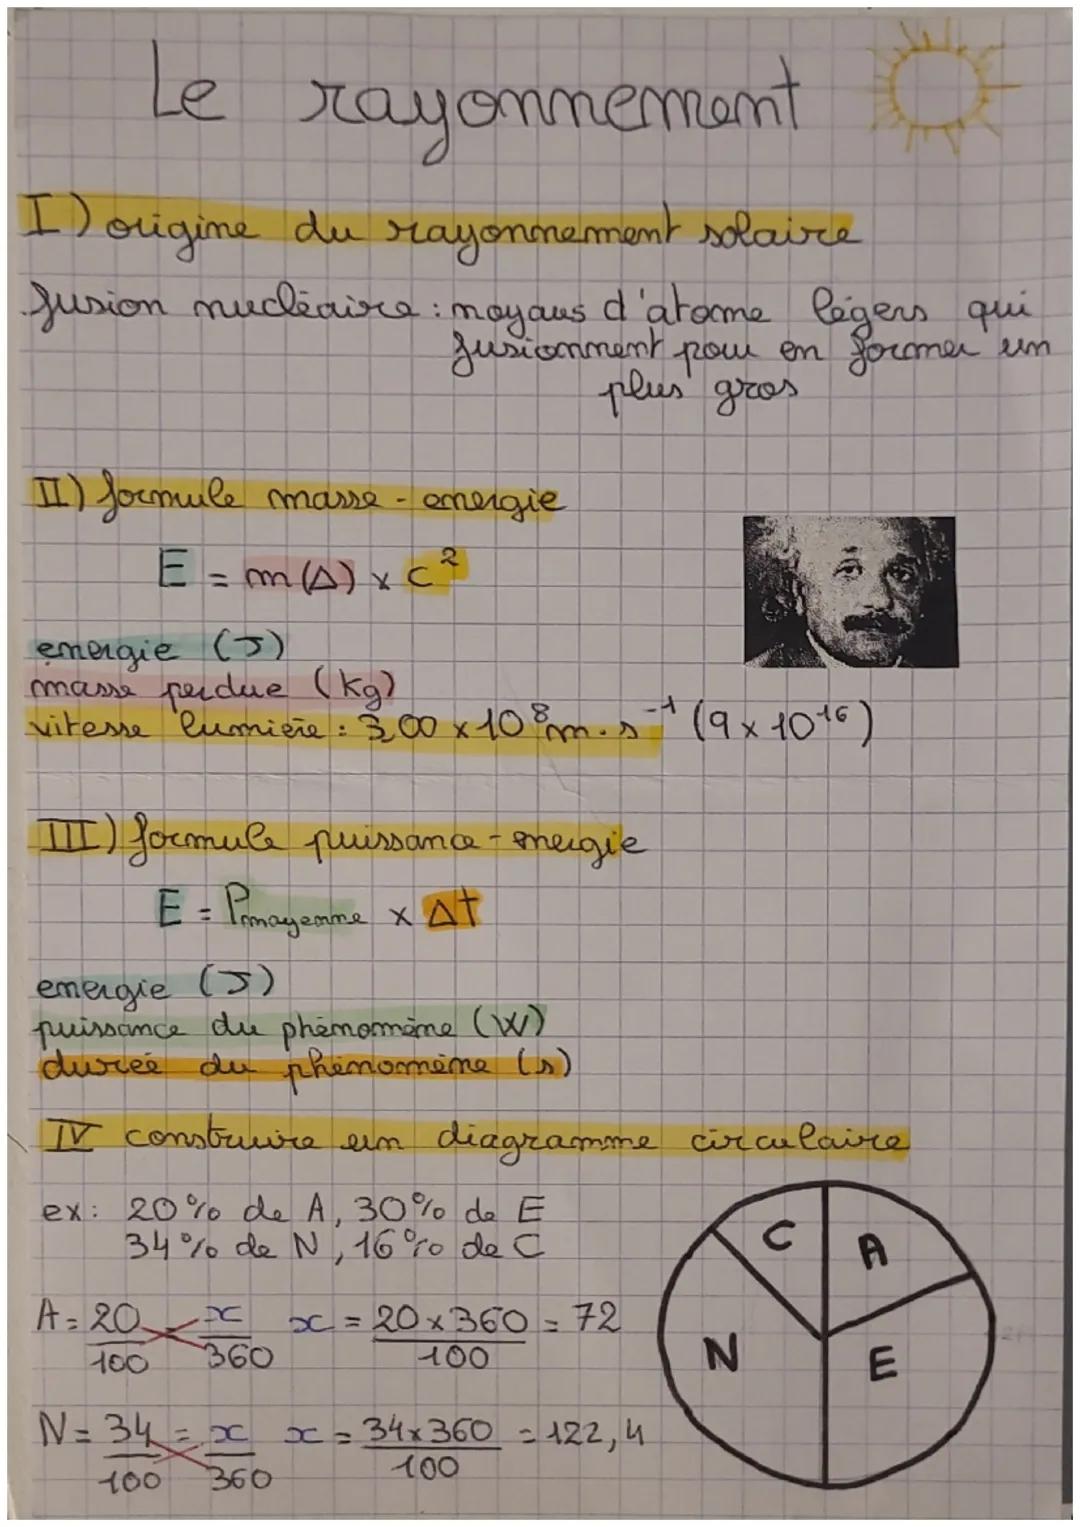 Le rayonnement
I) origine du rayonnement solaire
fusion nucléaire : noyaus d'atome légers qui
fusionnent pour en former un
plus gros
II) formule masse - energie
E = m(Δ) x c²
energie (J)
masse perdue (kg)
vitesse lumière : 3,00 x 10⁸ m.s⁻¹ (9 x 10¹⁶)
III) formule puissance - energie
E = Pmoyenne x Δt
energie (J)
puissance du phénomène (W)
durée du phénomène (s)
IV construire un diagramme circulaire
ex : 20% de A, 30% de E
34% de N, 16% de C
A = 20/100 = x/360 x = 20 x 360/100 = 72
N = 34/100 = x/360 x = 34 x 360/100 = 122,4
C
A
N
E